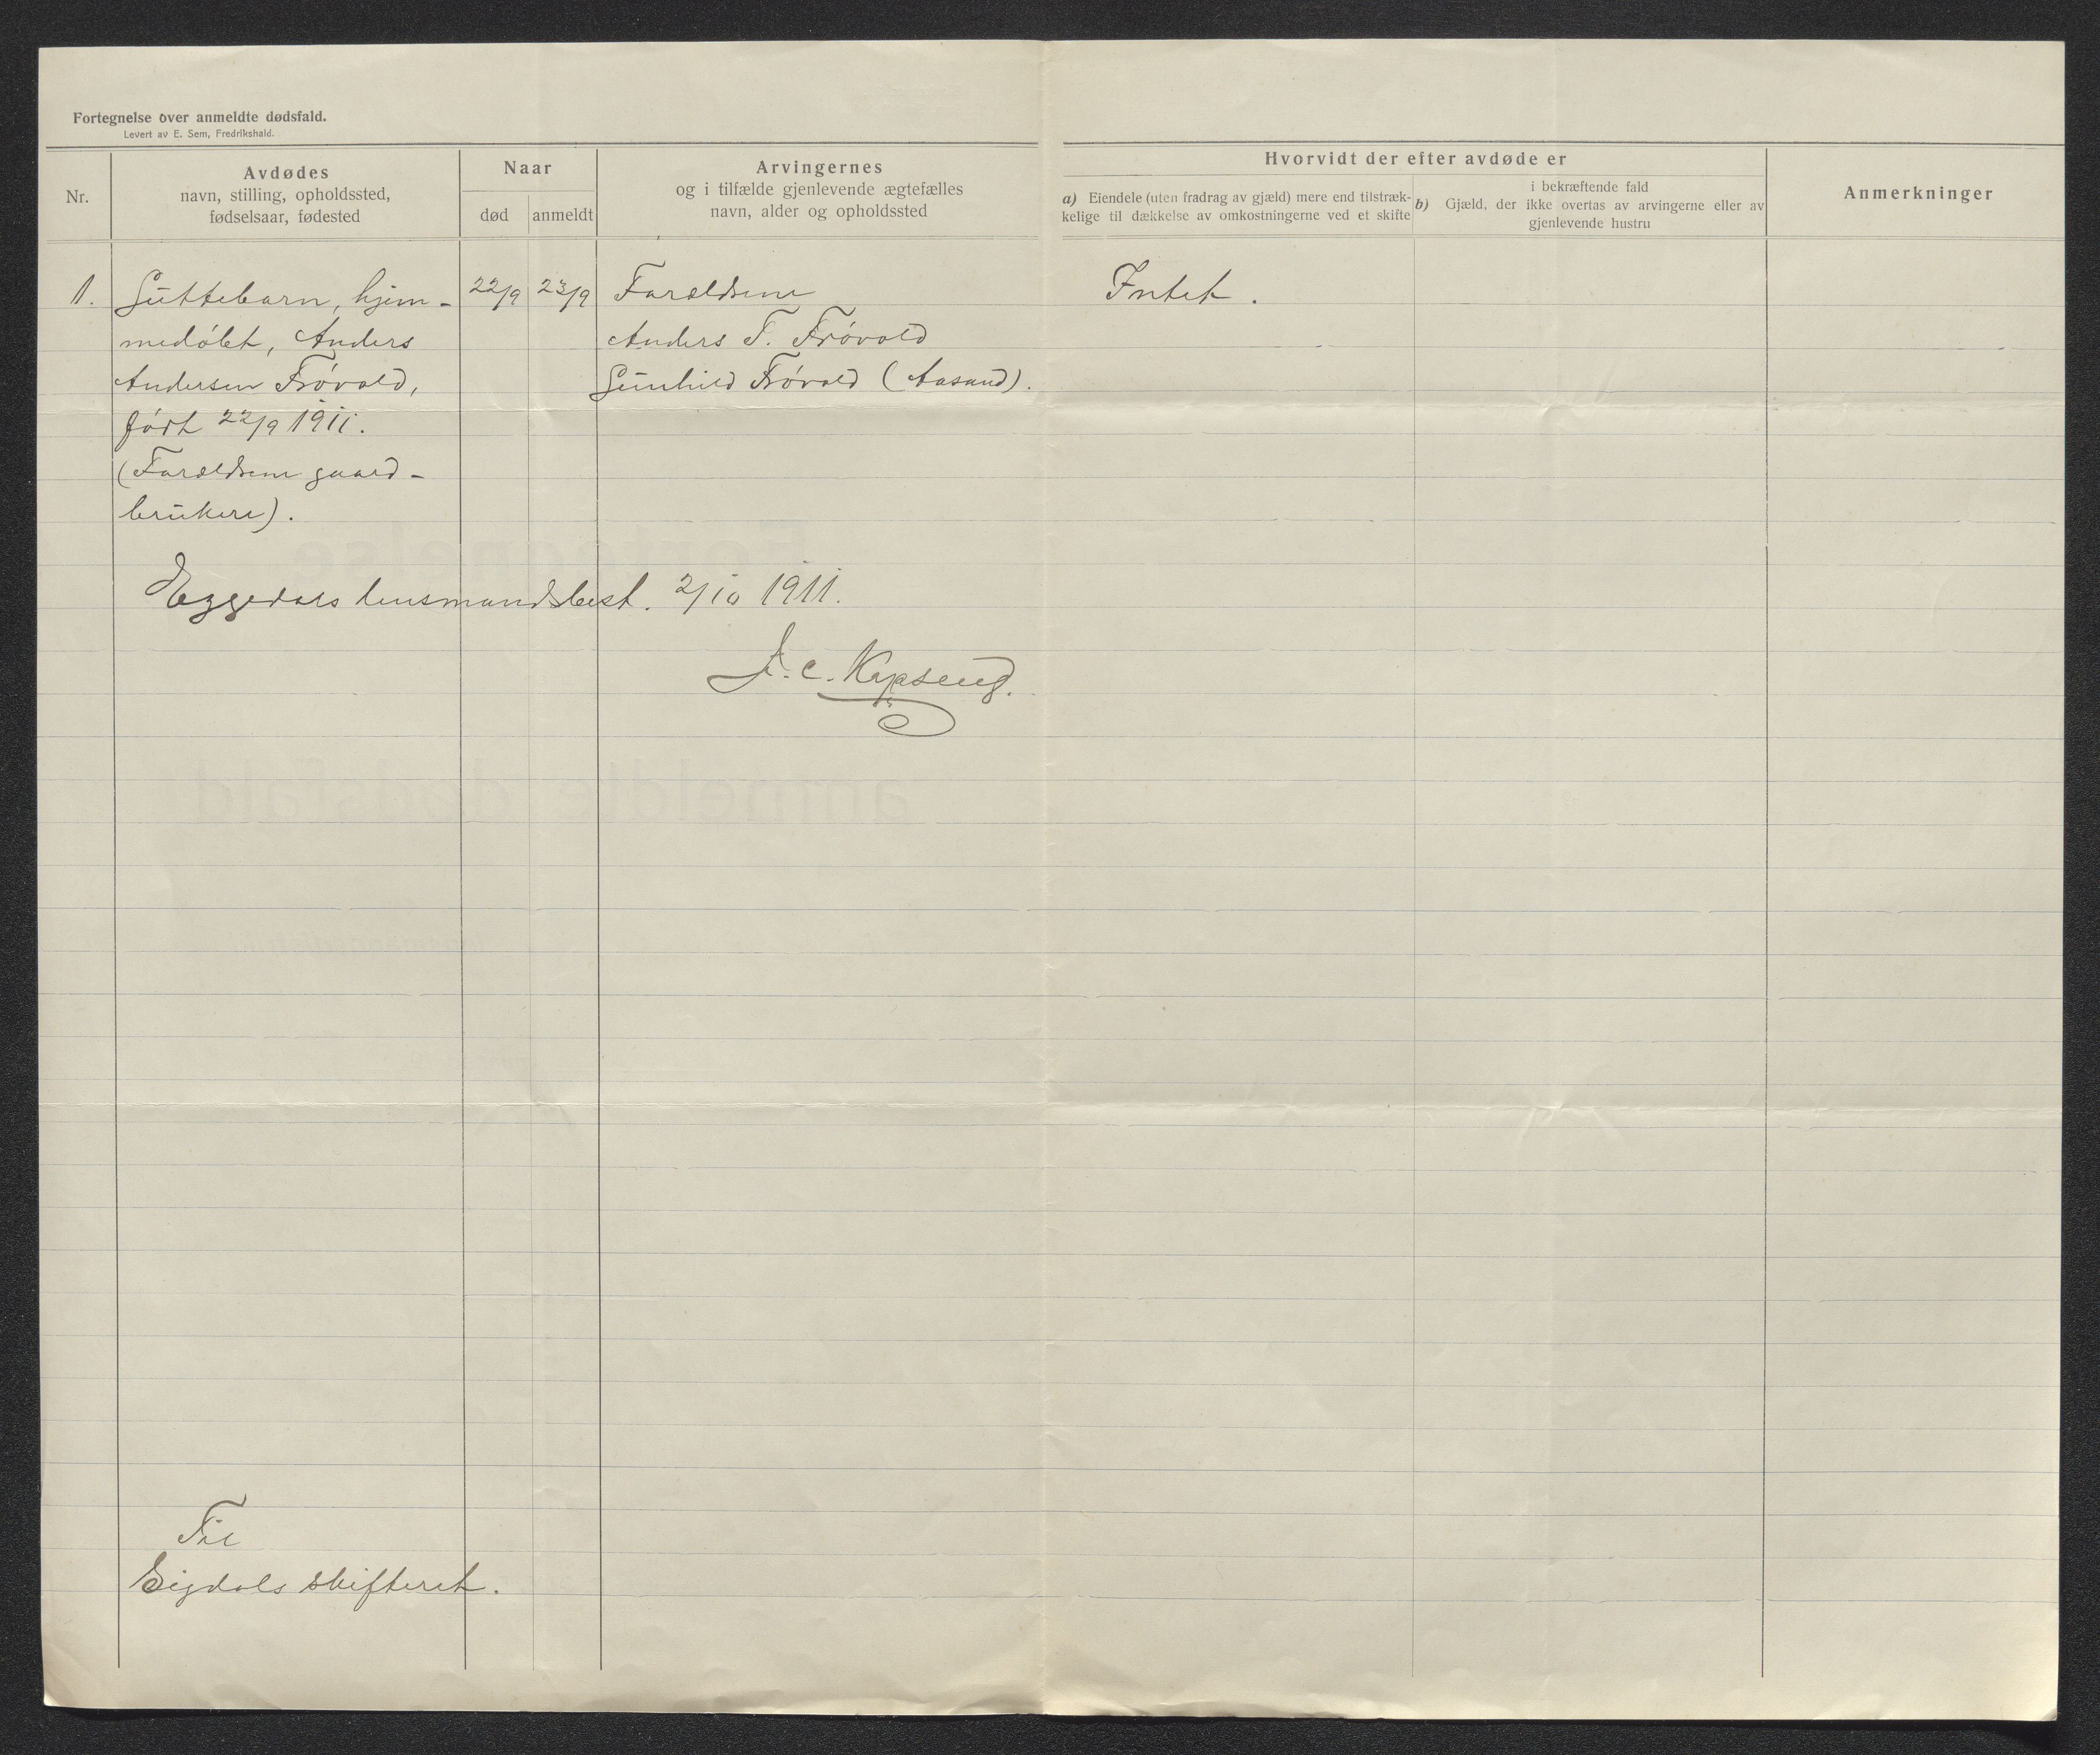 Fortegnelse over anmeldte dødsfald.
Levert av E. Sem, Fredrikshald.
Nr.
Avdødes
navn, stilling, opholdssted,
fødselsaar, fødested
Naar
død
anmeldt
Arvingernes
og i tilfælde gjenlevende ægtefælles
navn, alder og opholdssted
Hvorvidt der efter avdøde er
a) Eiendele (uten fradrag av gjæld) mere end tilstræk-
kelige til dækkelse av omkostningerne ved et skifte
i bekræftende fald
b) Gjæld, der ikke overtas av arvingerne eller av
gjenlevende hustru
Anmerkninger
1.
Guttebarn, hjem-
medøbt, Anders
Andersen Frövold,
født 22/9 1911.
(Forældrene gaard-
brukere).
22/9
23/9
Forældrene
Anders T. Frövold
Gunhild Frövold (Aasand).
Intet.
Eggedals lensmandsbest. 2/10 1911.
A. C. Kopseng.
Til
Sigdals skifteret.